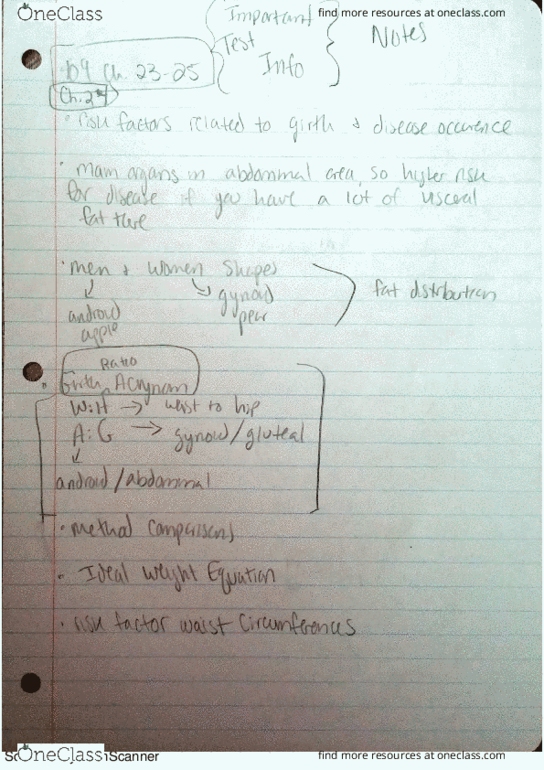 OneClass
find more resources at oneclass.com
Important
Test
Info
Notes
Ch. 23-25
Ch. 24
• risk factors related to girth & disease occurence
• main organs in abdominal area, so higher risk
for disease if you have a lot of visceral
fat there
• men & women shapes
android
gynoid
apple
pear
fat distribution
Ratio
• Girth Acrynom
W:H → waist to hip
A:G → gynoid/gluteal
android/abdominal
• method comparisons
• Ideal Weight Equation
• risk factor waist circumferences
OneClass
Scanner
find more resources at oneclass.com